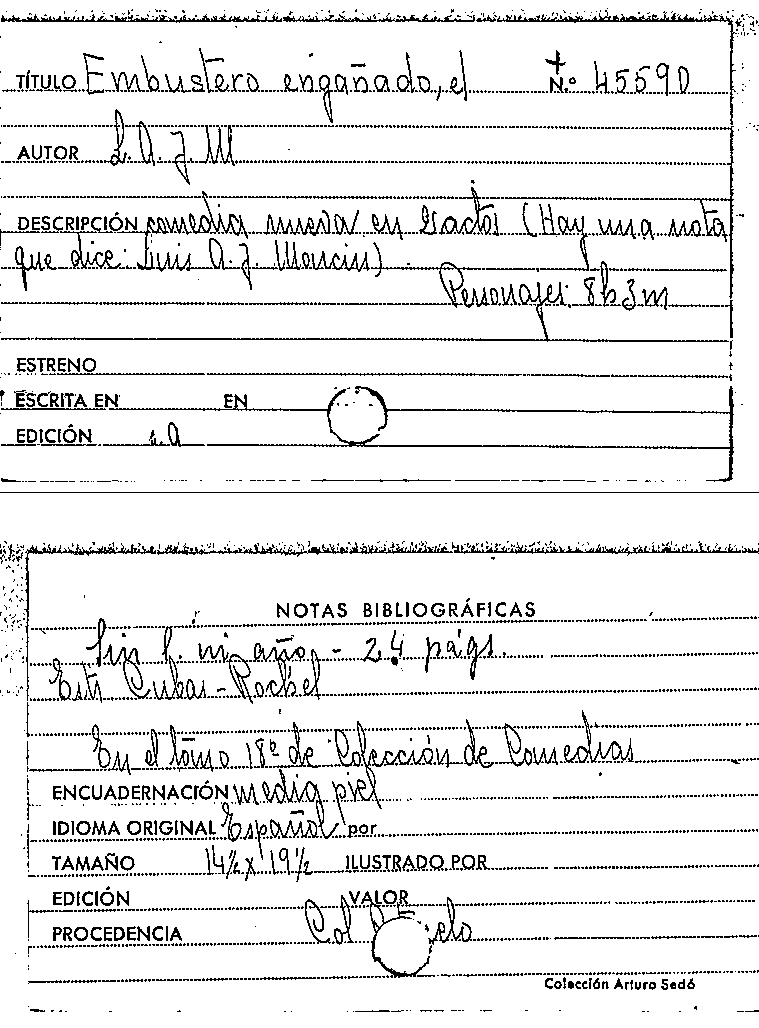 TÍTULO Embustero engañado, el N.º 45590
AUTOR L. A. J. M
DESCRIPCIÓN comedia nueva en 2 actos (Hay una nota
que dice: Luis A. J. Moncin)
Personajes: 8h 3m
ESTRENO
ESCRITA EN EN
EDICIÓN s.a
NOTAS BIBLIOGRÁFICAS
Sin l. ni año - 24 págs.
Est: Cubas-
En el tomo 18º de Colección de Comedias
ENCUADERNACIÓN media piel
IDIOMA ORIGINAL Español por
TAMAÑO 14½ x 19½ ILUSTRADO POR
EDICIÓN VALOR
PROCEDENCIA Col
Colección Arturo Sedó